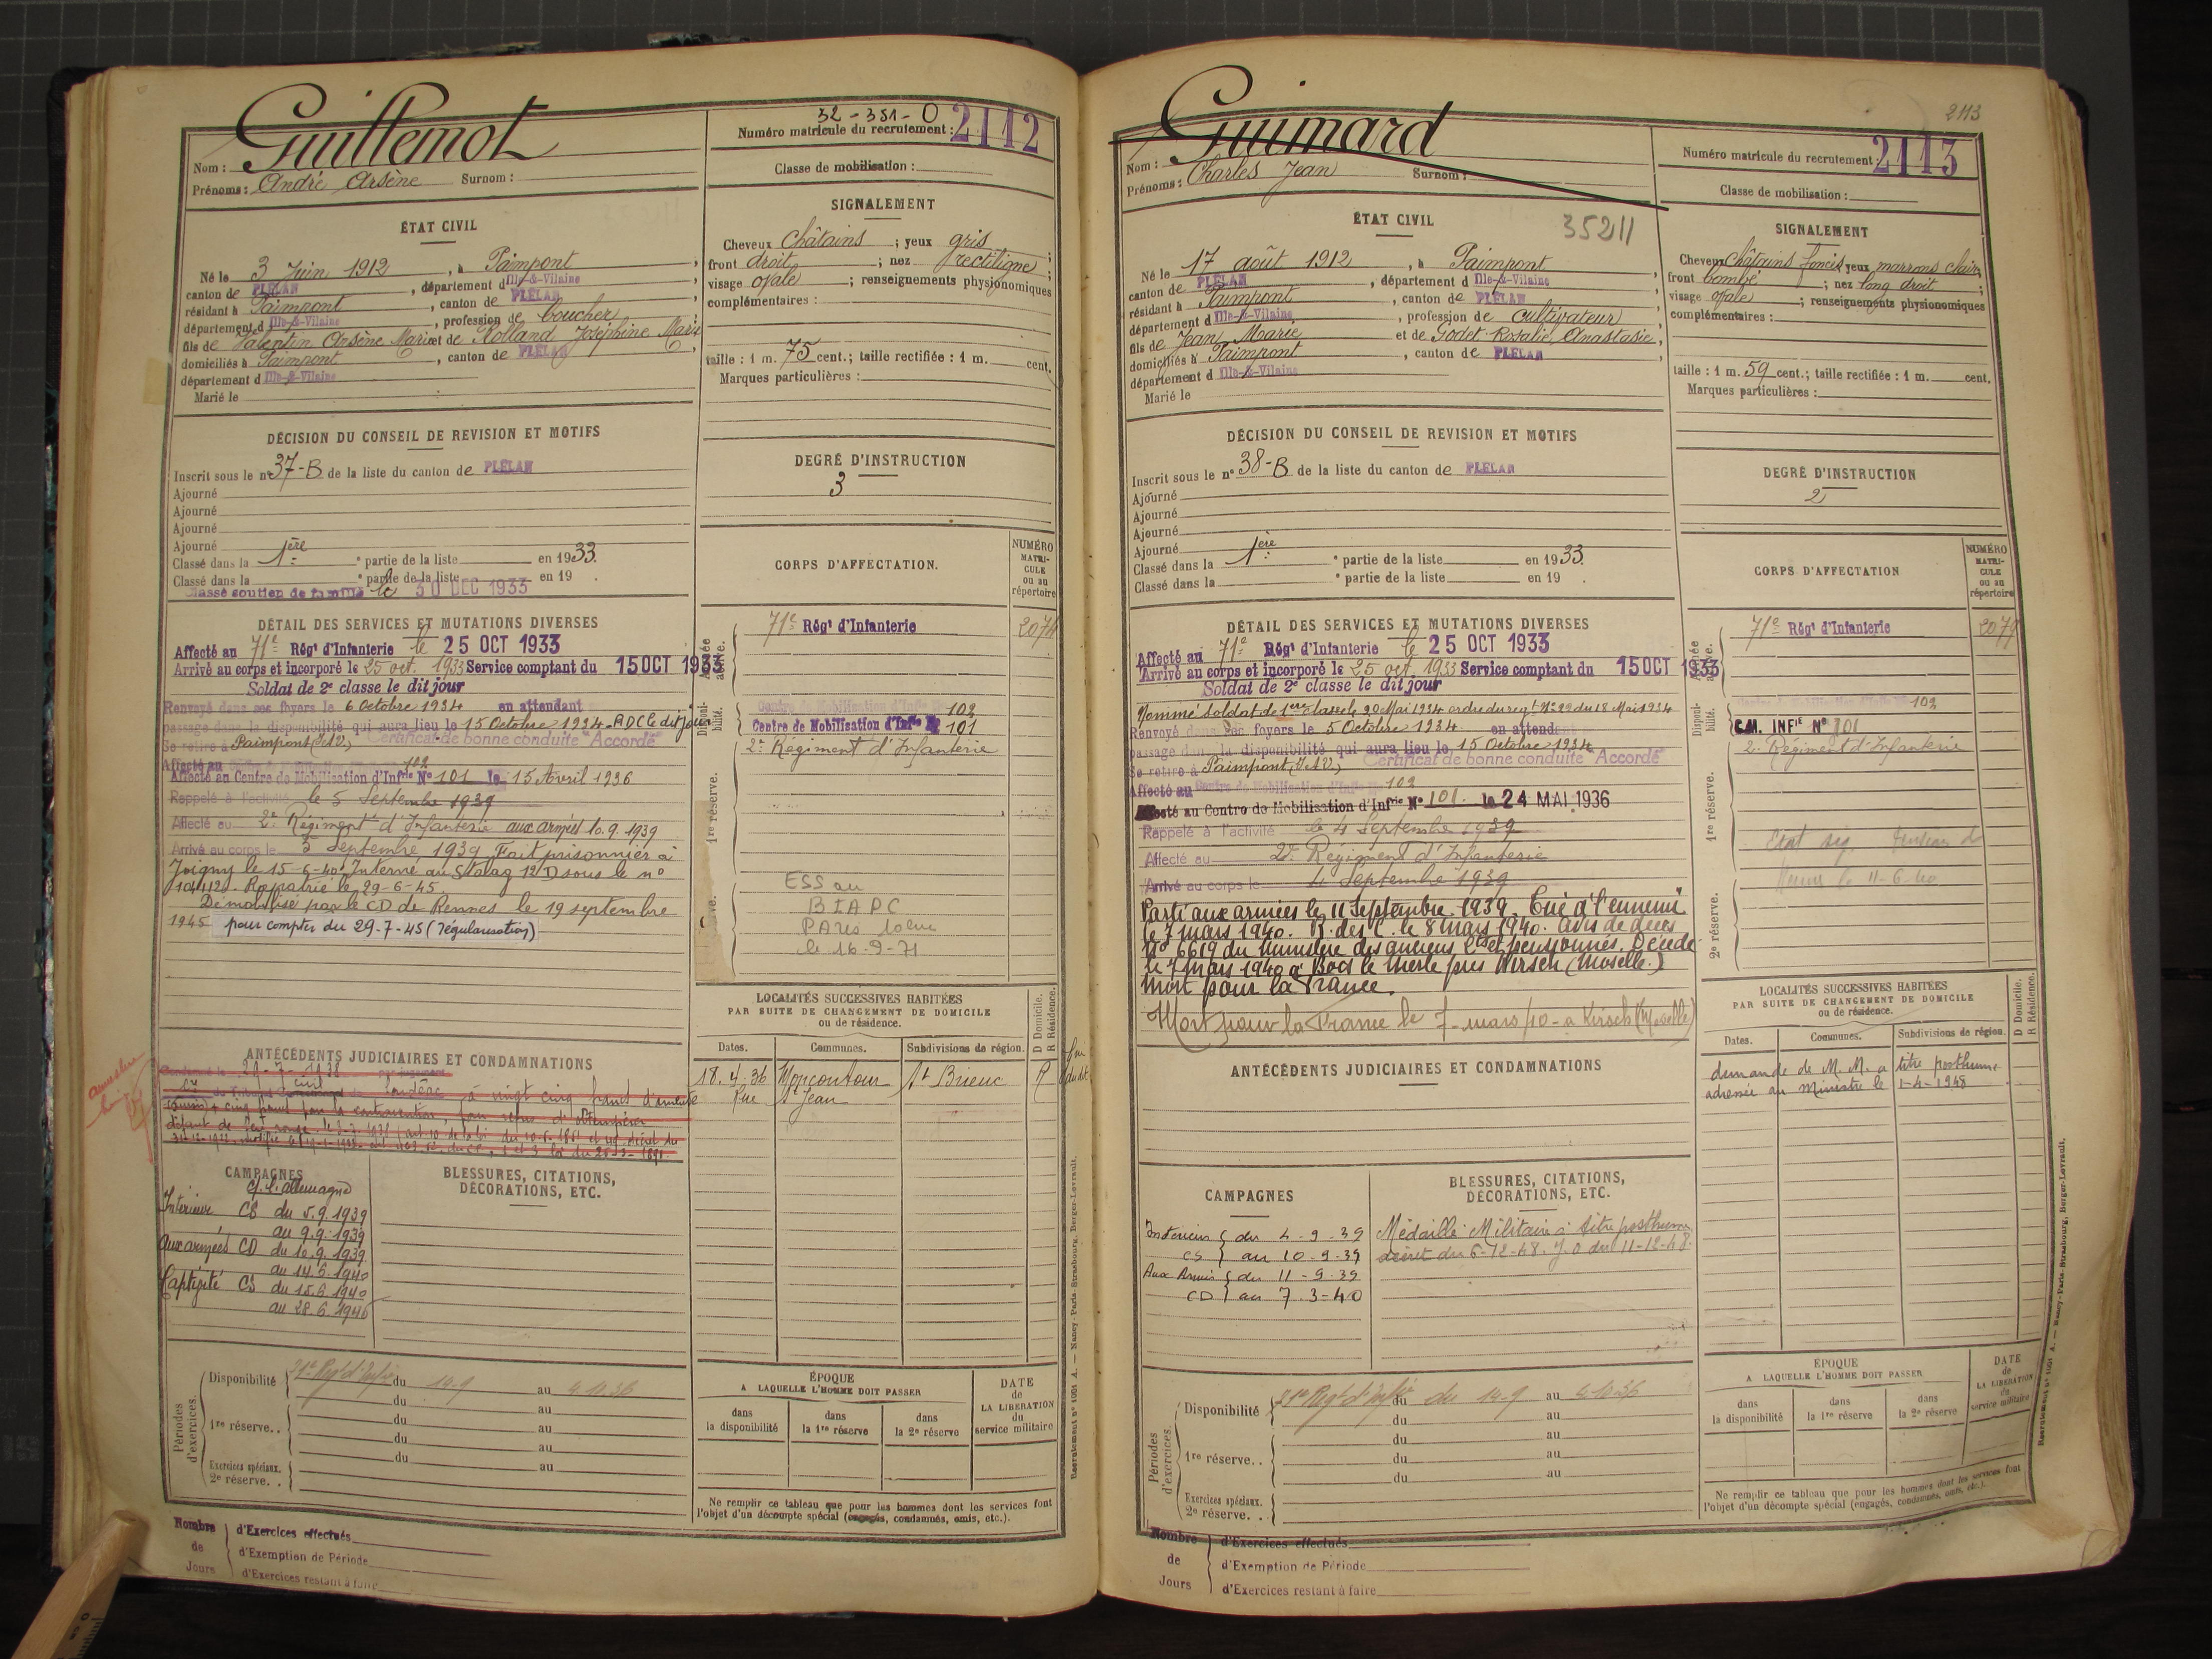 32-351-0
Guillemot
Numéro matricule du recrutement : 2112
Nom :
Prénoms : André Arsène Surnom :
Classe de mobilisation :
ÉTAT CIVIL
Né le 3 Juin 1912, à Paimpont,
canton de PLÉLAN, département d Ille-&-Vilaine,
résidant à Paimpont, canton de PLÉLAN,
département d Ille-&-Vilaine, profession de boucher
fils de Valentin Arsène Marie et de Rolland Joséphine Marie
domiciliés à Paimpont, canton de PLÉLAN,
département d Ille-&-Vilaine
Marié le
SIGNALEMENT
Cheveux Châtains ; yeux gris ;
front droit ; nez rectiligne ;
visage ovale ; renseignements physionomiques
complémentaires :
taille : 1 m. 75 cent.; taille rectifiée : 1 m. cent.
Marques particulières :
DÉCISION DU CONSEIL DE REVISION ET MOTIFS
Inscrit sous le n° 37-B de la liste du canton de PLÉLAN
Ajourné
Ajourné
Ajourné
Ajourné
Classé dans la 1ère partie de la liste en 1933.
Classé dans la e partie de la liste en 19 .
Classé soutien de famille le 30 DEC 1933
DEGRÉ D'INSTRUCTION
3
DÉTAIL DES SERVICES ET MUTATIONS DIVERSES
Affecté au 71e Régt d'Infanterie le 25 OCT 1933
Arrivé au corps et incorporé le 25 oct. 1933 Service comptant du 15 OCT 1933
Soldat de 2e classe le dit jour
Renvoyé dans ses foyers le 6 Octobre 1934 en attendant
passage dans la disponibilité qui aura lieu le 15 Octobre 1934 - RDC le dit jour
Se retire à Paimpont (I&V) Certificat de bonne conduite "Accordé"
Affecté au 102
Affecté au Centre de Mobilisation d'Infrie N° 101 le 15 Avril 1936
Rappelé à l'activité le 5 Septembre 1939
Affecté au 2e Régiment d'Infanterie aux armées 10.9.1939
Arrivé au corps le 5 Septembre 1939 Fait prisonnier à
Joigny le 15-6-40 Interné au Stalag 12 D sous le n°
Rapatrié le 29-6-45
Démobilisé par le CD de Rennes le 19 septembre
1945 pour compter du 29-7-45 (régularisation)
CORPS D'AFFECTATION.
NUMÉRO MATRICULE ou au répertoire
Armée active.
71e Régt d'Infanterie 2074
Disponibilité.
Centre de Mobilisation d'Infie N° 102
Centre de Mobilisation d'Infie N° 101
2e Régiment d'Infanterie
1re réserve.
ESS au
BIAPC
PARIS 10eme
le 16-9-71
LOCALITÉS SUCCESSIVES HABITÉES
PAR SUITE DE CHANGEMENT DE DOMICILE
ou de résidence.
Dates. Communes. Subdivisions de région. D Domicile. R Résidence.
18.4.36 Moncontour St Brieuc R
Rue St Jean
ANTÉCÉDENTS JUDICIAIRES ET CONDAMNATIONS
29-7-1938
Loudéac à vingt cinq francs d'amende
CAMPAGNES
c/ l'allemagne
Intérieur CS du 5.9.1939
au 9.9.1939
Aux armées CD du 10.9.1939
au 14.6.1940
Captivité CS du 15.6.1940
au 28.6.1945
BLESSURES, CITATIONS,
DÉCORATIONS, ETC.
Périodes d'exercices.
Disponibilité 71e Regt d'Infie du 14-9 au 4 10 36
du au
1re réserve.. du au
du au
du au
Exercices spéciaux.
2e réserve..
ÉPOQUE
A LAQUELLE L'HOMME DOIT PASSER
dans la disponibilité
dans la 1re réserve
dans la 2e réserve
DATE de LA LIBERATION du service militaire
Ne remplir ce tableau que pour les hommes dont les services font
l'objet d'un décompte spécial (engagés, condamnés, omis, etc.).
Nombre de Jours
d'Exercices effectués
d'Exemption de Période
d'Exercices restant à faire
Recrutement n° 1001 A. — Nancy-Paris-Strasbourg, Berger-Levrault.
2113
Guimard
Numéro matricule du recrutement : 2113
Nom :
Prénoms : Charles Jean Surnom :
Classe de mobilisation :
ÉTAT CIVIL
35211
Né le 17 août 1912, à Paimpont,
canton de PLÉLAN, département d Ille-&-Vilaine,
résidant à Paimpont, canton de PLÉLAN,
département d Ille-&-Vilaine, profession de cultivateur
fils de Jean Marie et de Godet Rosalie, Anastasie,
domiciliés à Paimpont, canton de PLÉLAN,
département d Ille-&-Vilaine
Marié le
SIGNALEMENT
Cheveux Châtains foncés yeux marrons clairs
front bombé ; nez long droit ;
visage ovale ; renseignements physionomiques
complémentaires :
taille : 1 m. 59 cent.; taille rectifiée : 1 m. cent.
Marques particulières :
DÉCISION DU CONSEIL DE REVISION ET MOTIFS
Inscrit sous le n° 38-B de la liste du canton de PLÉLAN
Ajourné
Ajourné
Ajourné
Ajourné
Classé dans la 1ère partie de la liste en 1933.
Classé dans la e partie de la liste en 19 .
DEGRÉ D'INSTRUCTION
2
DÉTAIL DES SERVICES ET MUTATIONS DIVERSES
Affecté au 71e Régt d'Infanterie le 25 OCT 1933
Arrivé au corps et incorporé le 25 oct. 1933 Service comptant du 15 OCT 1933
Soldat de 2e classe le dit jour
Nommé Soldat de 1ere Classe le 20 Mai 1934 ordre du regt N° 22 du 18 Mai 1934
Renvoyé dans ses foyers le 5 Octobre 1934 en attendant
passage dans la disponibilité qui aura lieu le 15 Octobre 1934
Se retire à Paimpont (I&V) Certificat de bonne conduite "Accordé"
Affecté au Centre de Mobilisation d'Infie N° 102
Affecté au Centre de Mobilisation d'Infrie N° 101. le 24 MAI 1936
Rappelé à l'activité le 4 Septembre 1939
Affecté au 2e Régiment d'Infanterie
Arrivé au corps le 4 Septembre 1939
Parti aux armées le 11 Septembre 1939. Tué à l'ennemi
le 7 mars 1940. R. des C. le 8 mars 1940. Avis de décès
N° 6619 du ministère des anciens Cts et pensionnés. Décédé
le 7 mars 1940 à Bois le Merle près Kirsch (Moselle.)
Mort pour la France.
Mort pour la France le 7-mars/40 - à Kirsch (Moselle)
CORPS D'AFFECTATION
NUMÉRO MATRICULE ou au répertoire
Armée active.
71e Régt d'Infanterie 2079
Disponibilité.
Centre de Mobilisation d'Infie N° 102
C.M. INFie N° 101
2e Régiment d'Infanterie
1re réserve.
2e réserve.
le 11-6-40
LOCALITÉS SUCCESSIVES HABITÉES
PAR SUITE DE CHANGEMENT DE DOMICILE
ou de résidence.
Dates. Communes. Subdivisions de région. D Domicile. R Résidence.
demande de M.M. a titre posthume
adressée au Ministre le 1-4-1948
ANTÉCÉDENTS JUDICIAIRES ET CONDAMNATIONS
CAMPAGNES
Intérieur du 4-9-39
CS au 10-9-39
Aux Armées du 11-9-39
CD au 7.3-40
BLESSURES, CITATIONS,
DÉCORATIONS, ETC.
Médaille Militaire à titre posthume
décret du 6-12-48. J.O du 11-12-48.
Périodes d'exercices.
Disponibilité 71e Regt d'Infie du 14-9 au 4-10-36
du au
1re réserve.. du au
du au
du au
Exercices spéciaux.
2e réserve..
ÉPOQUE
A LAQUELLE L'HOMME DOIT PASSER
dans la disponibilité
dans la 1re réserve
dans la 2e réserve
DATE de LA LIBERATION du service militaire
Ne remplir ce tableau que pour les hommes dont les services font
l'objet d'un décompte spécial (engagés, condamnés, omis, etc.).
Nombre de Jours
d'Exercices effectués
d'Exemption de Période
d'Exercices restant à faire
Recrutement n° 1001 A. — Nancy-Paris-Strasbourg, Berger-Levrault.